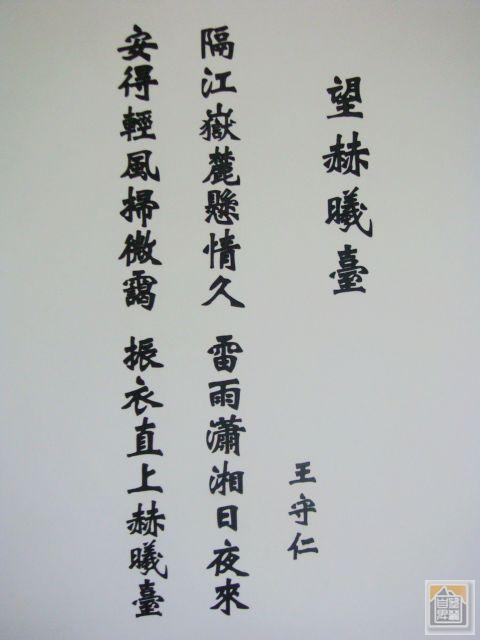 望赫曦臺
王守仁
隔江嶽麓懸情久 雷雨瀟湘日夜來
安得輕風掃微靄 振衣直上赫曦臺